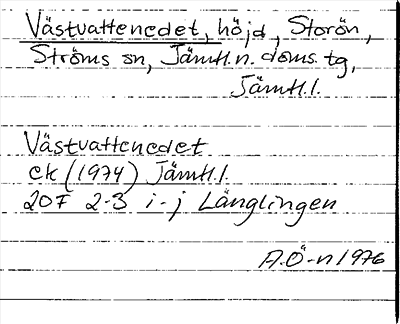 Västvattenedet, höjd, Storön,
Ströms sn, Jämtl.n. doms. tg,
Jämtl.l.
Västvattenedet
ek (1974) Jämtl.l.
20F 2-3 i-j Långlingen
A.Ö-n 1976